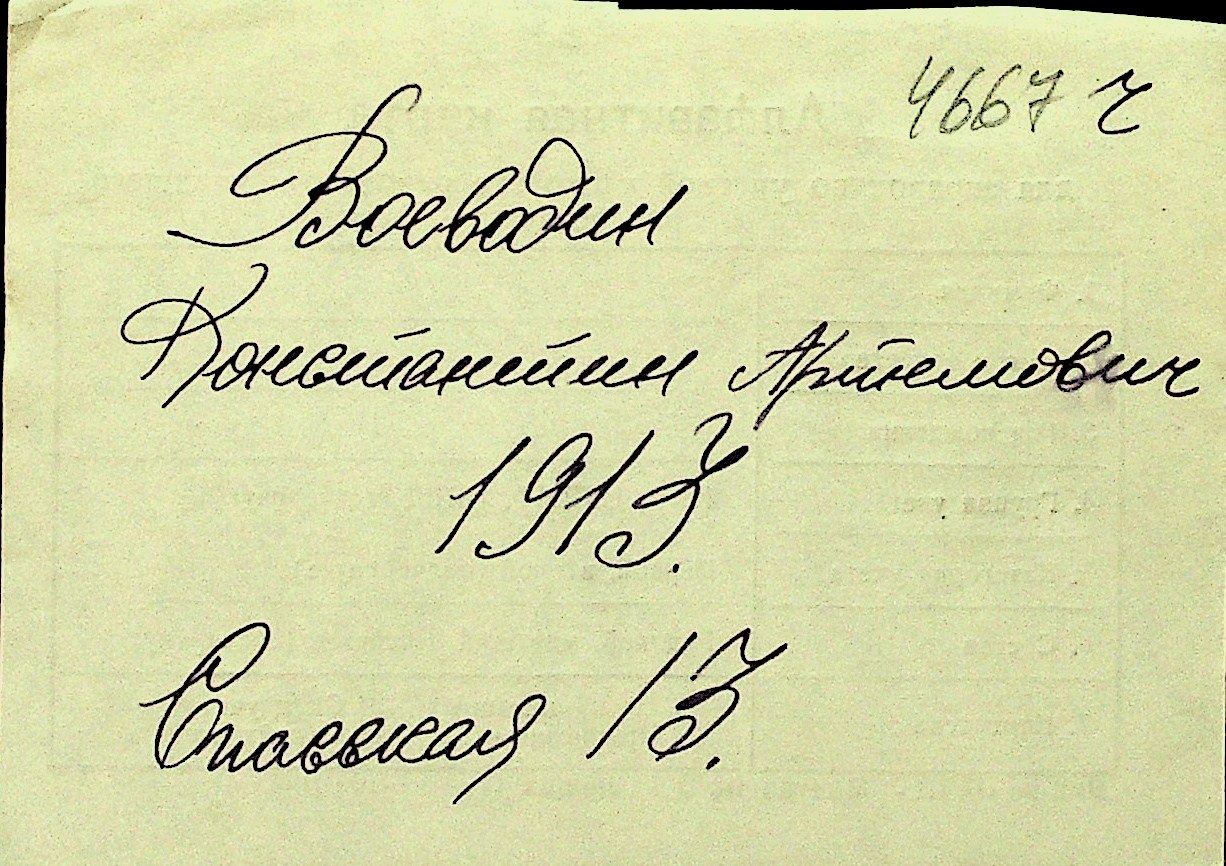 4667 ч
Воеводин
Константин Артемович
1913.
Спасская 13.